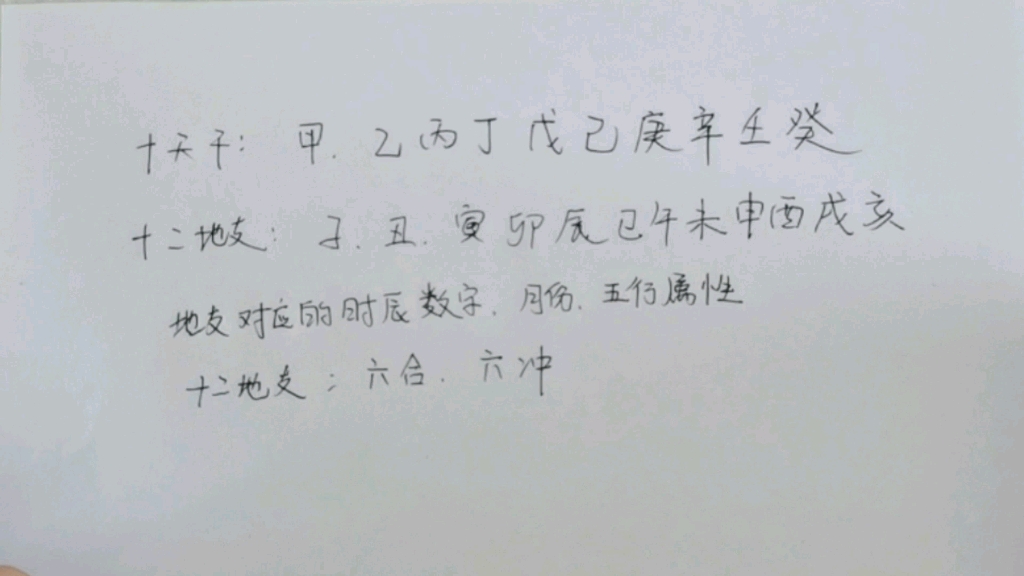 十天干: 甲. 乙丙丁戊己庚辛壬癸
十二地支: 子. 丑. 寅卯辰巳午未申酉戌亥
地支对应的时辰数字. 月份. 五行属性
十二地支: 六合. 六冲